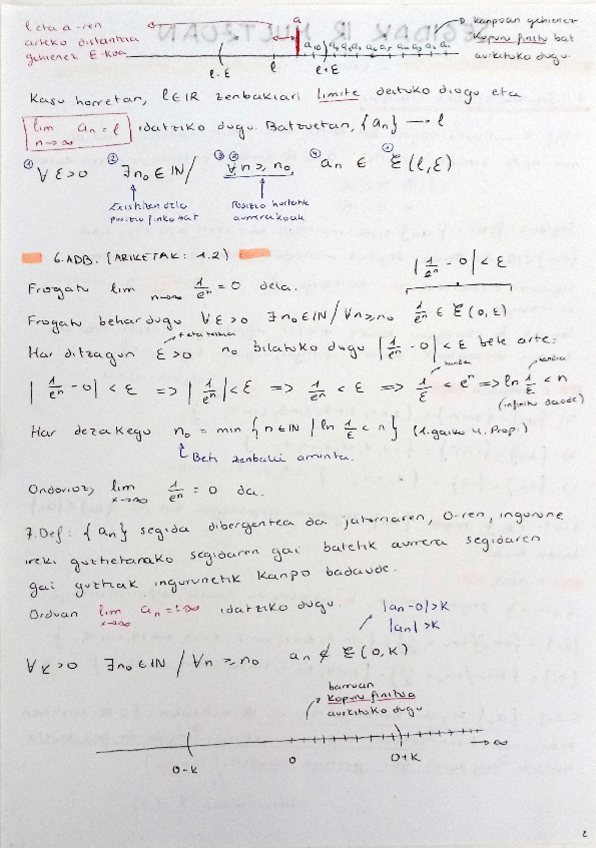 l eta a-ren
arteko distantzia
gehienez ε-koa
a
kanpoan gehienez
kopuru finitu bat
aurkituko dugu
l-ε l l+ε
Kasu horretan, l∈IR zenbakiari limite deituko diogu eta
lim n→∞ an = l idatziko dugu. Batzuetan, {an} → l
① ∀ε>0 ② ∃n₀∈IN/ ③ ∀n≥n₀ ④ an ∈ ℰ(l,ε)
Existitzen dela
posizio finko bat
Posizio hortatik
aurrerakoak
6. ADB. (ARIKETAK: 1.2)
|1/eⁿ - 0| < ε
Frogatu lim n→∞ 1/eⁿ = 0 dela.
Frogatu behar dugu ∀ε>0 ∃n₀∈IN/∀n≥n₀ 1/eⁿ ∈ ℰ(0,ε)
Har ditzagun ε>0 n₀ bilatuko dugu |1/eⁿ - 0| < ε bete arte:
|1/eⁿ - 0| < ε => |1/eⁿ| < ε => 1/eⁿ < ε => 1/ε < eⁿ => ln 1/ε < n
(infinitu daude)
Har dezakegu n₀ = min {n∈IN | ln 1/ε < n} (1. gaiko 4. Prop.)
Beti zenbaki arrunta.
Ondorioz, lim x→∞ 1/eⁿ = 0 da.
7. Def: {an} segida dibergentea da jatorriaren, 0-ren, ingurune
ireki guztietarako segidaren gai batetik aurrera segidaren
gai guztiak ingurunetik kanpo badaude.
Orduan lim x→∞ an = ±∞ idatziko dugu.
|an-0|>K
|an|>K
∀K>0 ∃n₀∈IN / ∀n≥n₀ an ∉ ℰ(0,K)
barruan
kopuru finitua
aurkituko dugu
0-K 0 0+K →∞
2